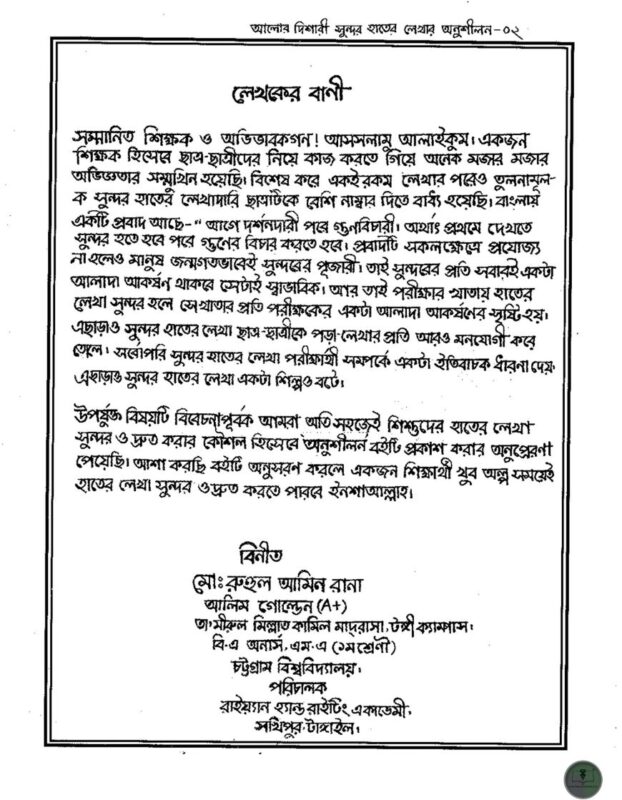 আলোর দিশারী সুন্দর হাতের লেখার অনুশীলন-০২
লেখকের বানী
সম্মানিত শিক্ষক ও অভিভাবকগন! আসসলামু আলাইকুম। একজন
শিক্ষক হিসেবে ছাত্র-ছাত্রীদের নিয়ে কাজ করতে গিয়ে অনেক মজার মজার
অভিজ্ঞতার সম্মুখিন হয়েছি। বিশেষ করে একই রকম লেখার পরেও তুলনামূল-
ক সুন্দর হাতের লেখাদারি ছাত্রটিকে বেশি নাম্বার দিতে বাধ্য হয়েছি। বাংলায়
একটি প্রবাদ আছে-" আগে দর্শনদারী পরে গুনবিচারী। অর্থাৎ প্রথমে দেখতে
সুন্দর হতে হবে পরে গুনের বিচার করতে হবে। প্রবাদটি সকলক্ষেত্রে প্রযোজ্য
না হলেও মানুষ জন্মগতভাবেই সুন্দরের পূজারী। তাই সুন্দরের প্রতি সবারই একটা
আলাদা আকর্ষন থাকবে সেটাই স্বাভাবিক। আর তাই পরীক্ষার খাতায় হাতের
লেখা সুন্দর হলে সেখাতার প্রতি পরীক্ষকের একটা আলাদা আকর্ষনের সৃষ্টি হয়।
এছাড়াও সুন্দর হাতের লেখা ছাত্র-ছাত্রীকে পড়া-লেখার প্রতি আরও মনযোগী করে
তোলে। সর্বোপরি সুন্দর হাতের লেখা পরীক্ষার্থী সম্পর্কে একটা ইতিবাচক ধারনা দেয়,
এছাড়াও সুন্দর হাতের লেখা একটা শিল্পও বটে।
উপর্যুক্ত বিষয়টি বিবেচনাপূর্বক আমরা অতি সহজেই শিশুদের হাতের লেখা
সুন্দর ও দ্রুত করার কৌশল হিসেবে অনুশীলন বইটি প্রকাশ করার অনুপ্রেরণা
পেয়েছি। আশা করছি বইটি অনুসরণ করলে একজন শিক্ষার্থী খুব অল্প সময়েই
হাতের লেখা সুন্দর ও দ্রুত করতে পারবে ইনশাআল্লাহ।
বিনীত
মোঃ রুহুল আমিন রানা
আলিম গোল্ডেন (A+)
তা'মীরুল মিল্লাত কামিল মাদ্‌রাসা, টঙ্গী ক্যাম্পাস।
বি-এ অনার্স, এম-এ (১ম শ্রেণী)
চট্টগ্রাম বিশ্ববিদ্যালয়।
পরিচালক
রাইয়্যান হ্যান্ড রাইটিং একাডেমী,
সখিপুর, টাঙ্গাইল।